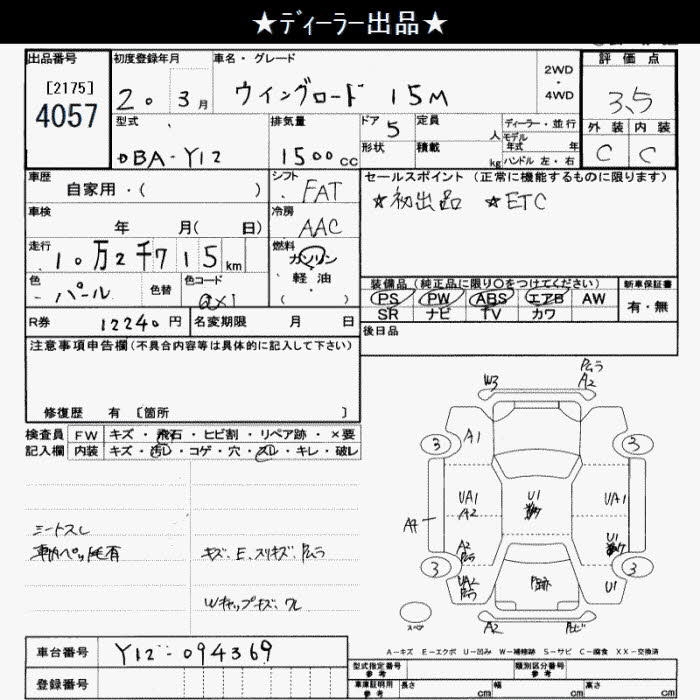 ★ディーラー出品★
出品番号 初度登録年月 車名・グレード 評価点
[2175]
4057
20年 3月 ウイングロード 15M 2WD・4WD 3.5
型式 排気量 ドア 5 定員 人 ディーラー・並行 外装 内装
DBA-Y12 1500cc 形状 積載 kg モデル年式 年 ハンドル 左・右 C C
車歴 自家用・( ) シフト FAT セールスポイント (正常に機能するものに限ります)
車検 年 月( 日) 冷房 AAC ★初出品 ★ETC
走行 10万2千715km 燃料 ガソリン・軽油・( )
色 パール 色替 色コード QX1 装備品 (純正品に限り○をつけてください) 新車保証書
PS PW ABS エアB AW 有・無
SR ナビ TV カワ
R券 12240円 名変期限 月 日 後日品
注意事項申告欄 (不具合内容等は具体的に記入して下さい)
修復歴 有 [箇所 ]
検査員 FW キズ・飛石・ヒビ割・リペア跡・×要
記入欄 内装 キズ・汚レ・コゲ・穴・スレ・キレ・破レ
シートスレ
車内ペット毛有 キズ、E、スリキズ、Pムラ
Wキャップキズ、ワレ
W3 Pムラ A2
3 A1 3
UA1 A2 U1 UA1
A4 A2 Pムラ U1
3 UA2 Pムラ P跡 U1 3
スペア A2 Pヒビ
A-キズ E-エクボ U-凹み W-補修跡 S-サビ C-腐食 XX-交換済
車台番号 Y12-094369
登録番号
型式指定番号 参考 類別区分番号 参考
車庫証明用 参考 長さ cm 幅 cm 高さ cm